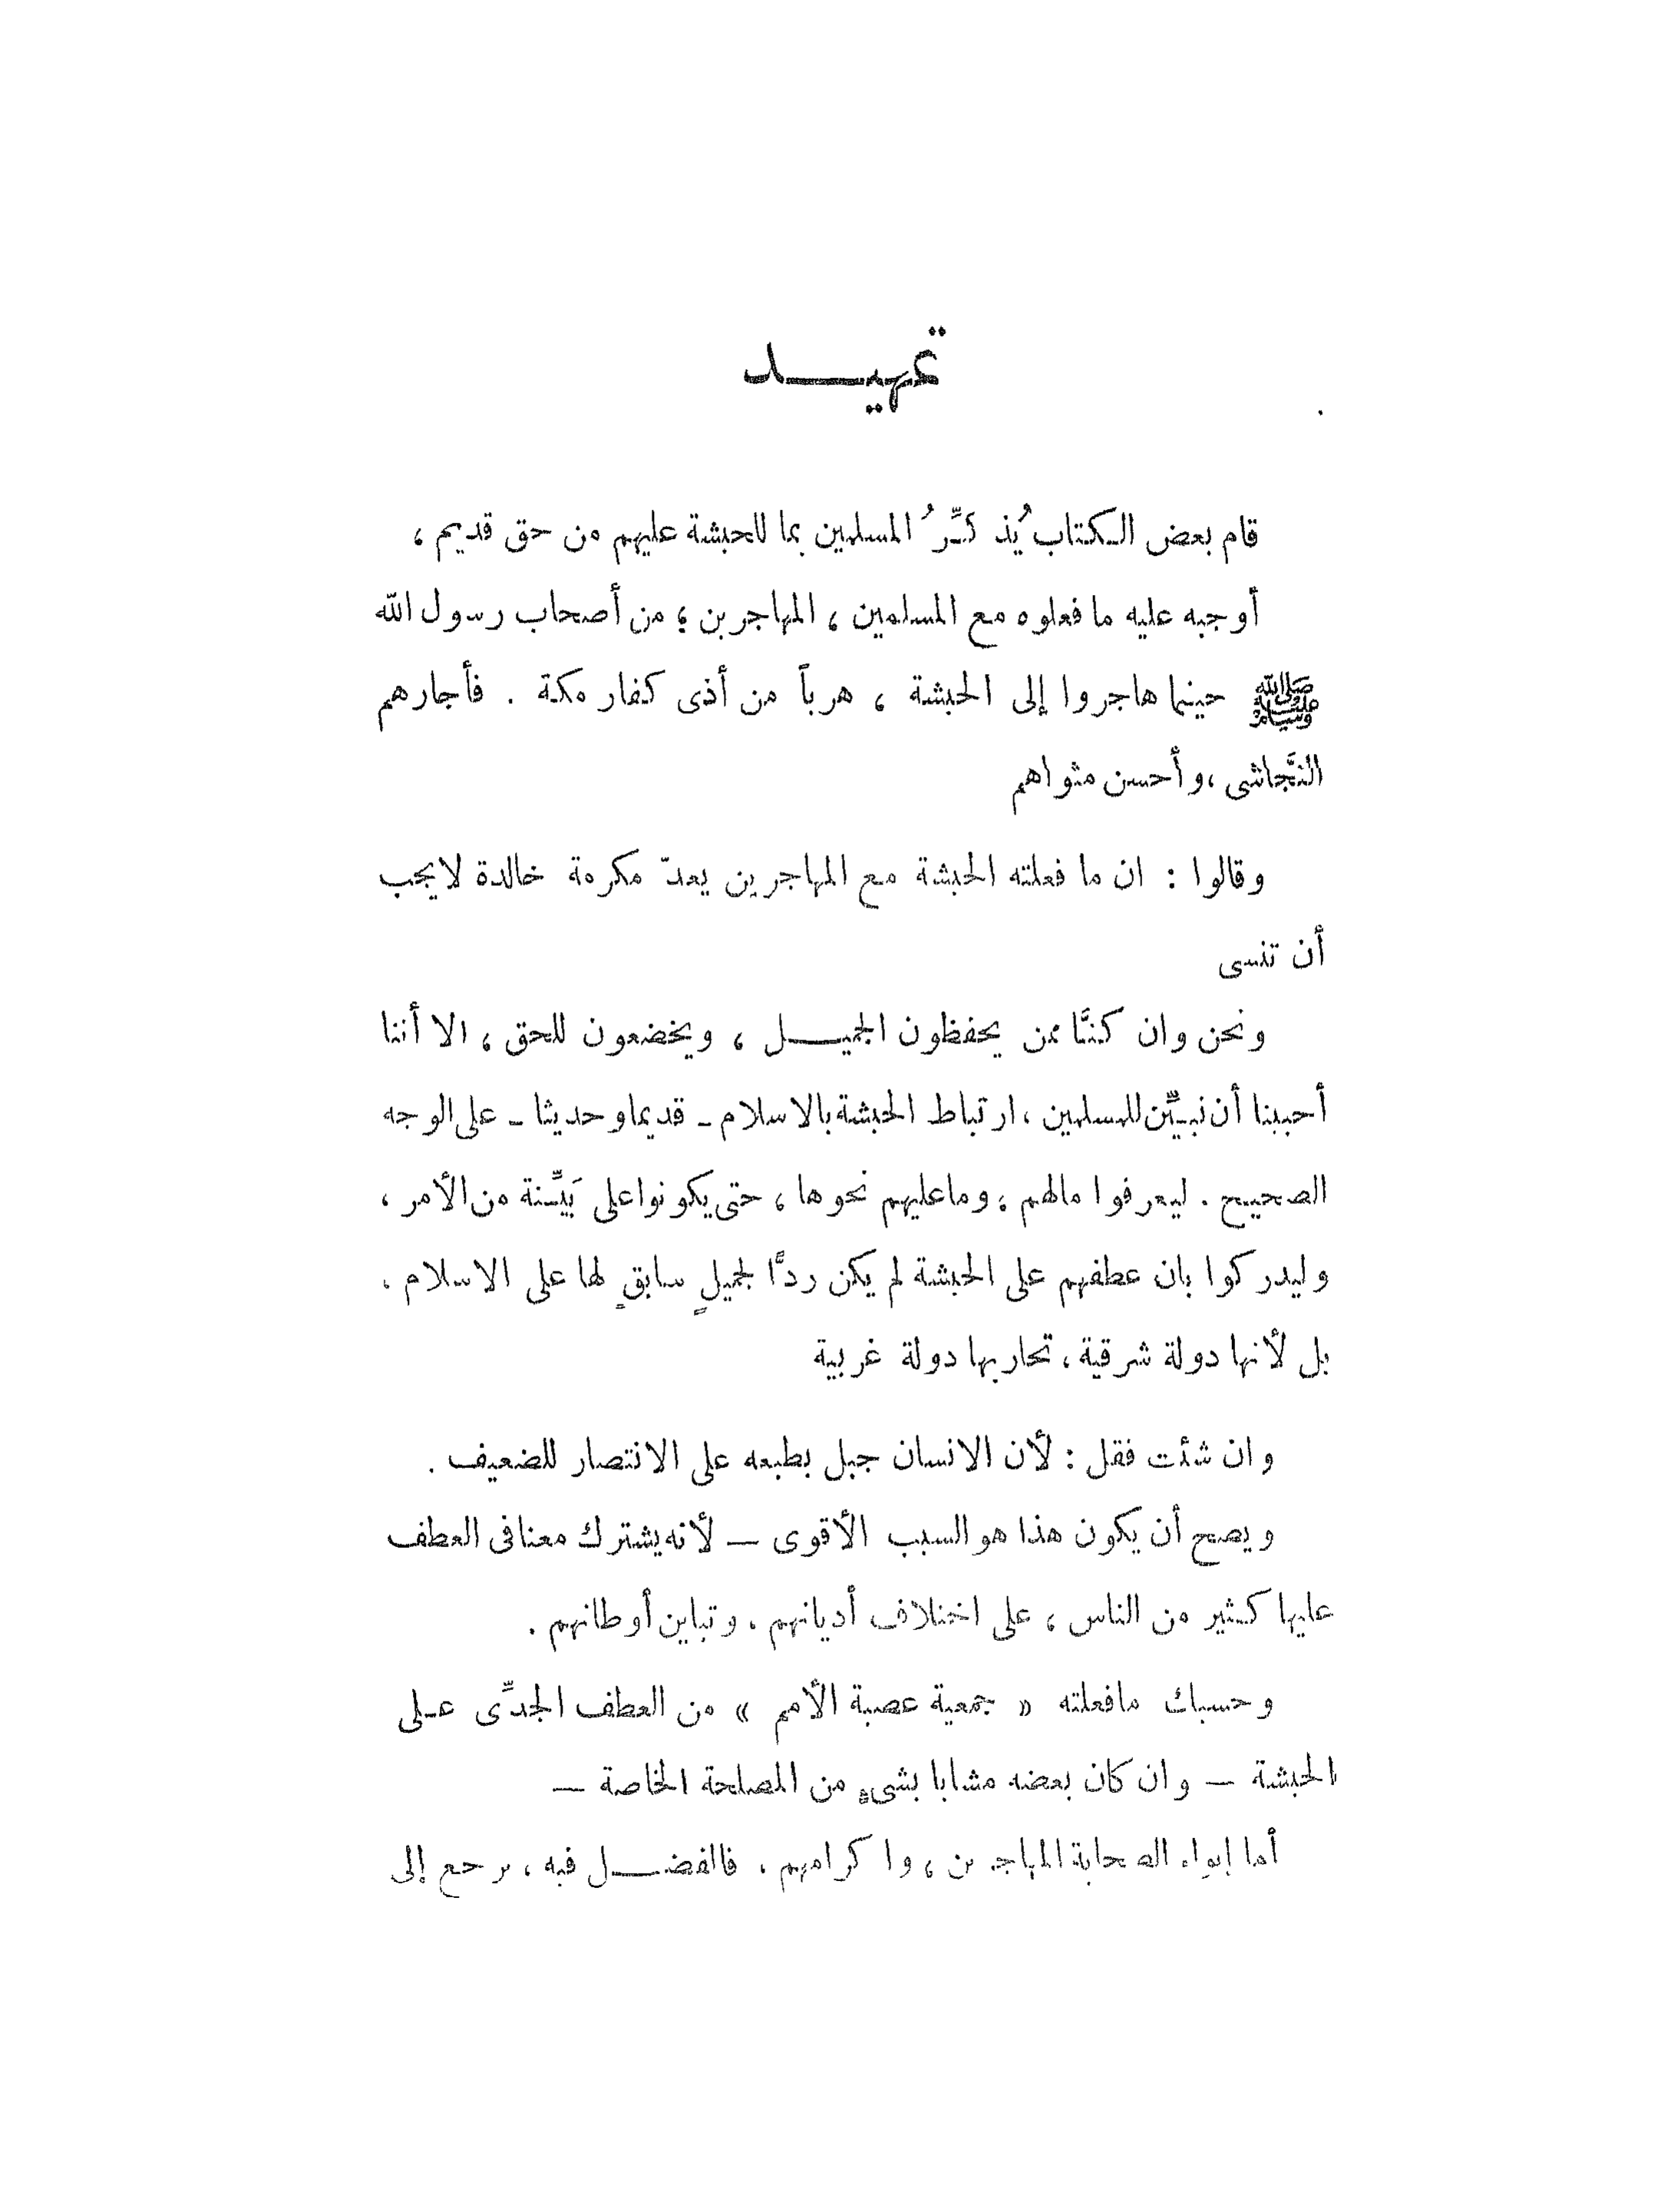 تمهيـــد
قام بعض الكتاب يُذكِّرُ المسلمين بما للحبشة عليهم من حق قديم ،
أوجبه عليه ما فعلوه مع المسلمين ، المهاجرين ؛ من أصحاب رسول الله
ﷺ حينما هاجروا إلى الحبشة ، هرباً من أذى كفار مكة . فأجارهم
النَّجاشى ، وأحسن مثواهم
وقالوا : ان ما فعلته الحبشة مع المهاجرين يعدّ مكرمة خالدة لا يجب
أن تنسى
ونحن وان كنَّا ممن يحفظون الجميـــل ، ويخضعون للحق ، الا أننا
أحببنا أن نبيِّن للمسلمين ، ارتباط الحبشة بالاسلام ـ قديما وحديثا ـ على الوجه
الصحيح . ليعرفوا مالهم ، وما عليهم نحوها ، حتى يكونوا على بَيِّنة من الأمر ،
وليدركوا بان عطفهم على الحبشة لم يكن ردًّا لجميلٍ سابقٍ لها على الاسلام .
بل لأنها دولة شرقية ، تحاربها دولة غربية
وان شئت فقل : لأن الانسان جبل بطبعه على الانتصار للضعيف .
ويصح أن يكون هذا هو السبب الأقوى — لأنه يشترك معنا فى العطف
عليها كثير من الناس ، على اختلاف أديانهم ، وتباين أوطانهم .
وحسبك مافعلته « جمعية عصبة الأمم » من العطف الجدِّى عـلى
الحبشة — وان كان بعضه مشابا بشىء من المصلحة الخاصة —
أما إيواء الصحابة المهاجرين ، واكرامهم ، فالفضـــل فيه ، يرجع إلى